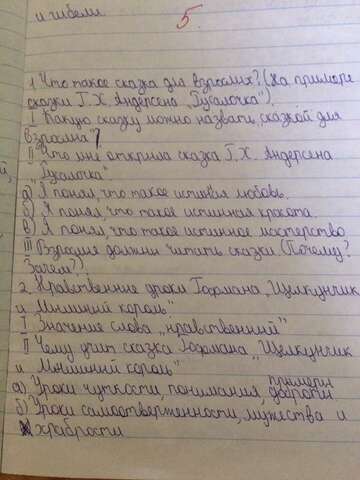 и гибели.
5.
1. Что такое сказка для взрослых? (На примере
сказки Г. Х. Андерсена „Русалочка").
I Какую сказку можно назвать „сказкой для
взрослых"?
II Что мне открыла сказка Г. Х. Андерсена
„Русалочка"
а) Я понял, что такое истинная любовь.
б) Я понял, что такое истинная красота.
в) Я понял, что такое истинное мастерство
III Взрослые должны читать сказки (Почему?
Зачем?)
2. Нравственные уроки Гофмана „Щелкунчик
и Мышиный король"
I Значение слова „нравственный"
II Чему учит сказка Гофмана „Щелкунчик
и Мышиный король"
примеры
а) Уроки чуткости, понимания, доброты
б) Уроки самоотверженности, мужества и
храбрости